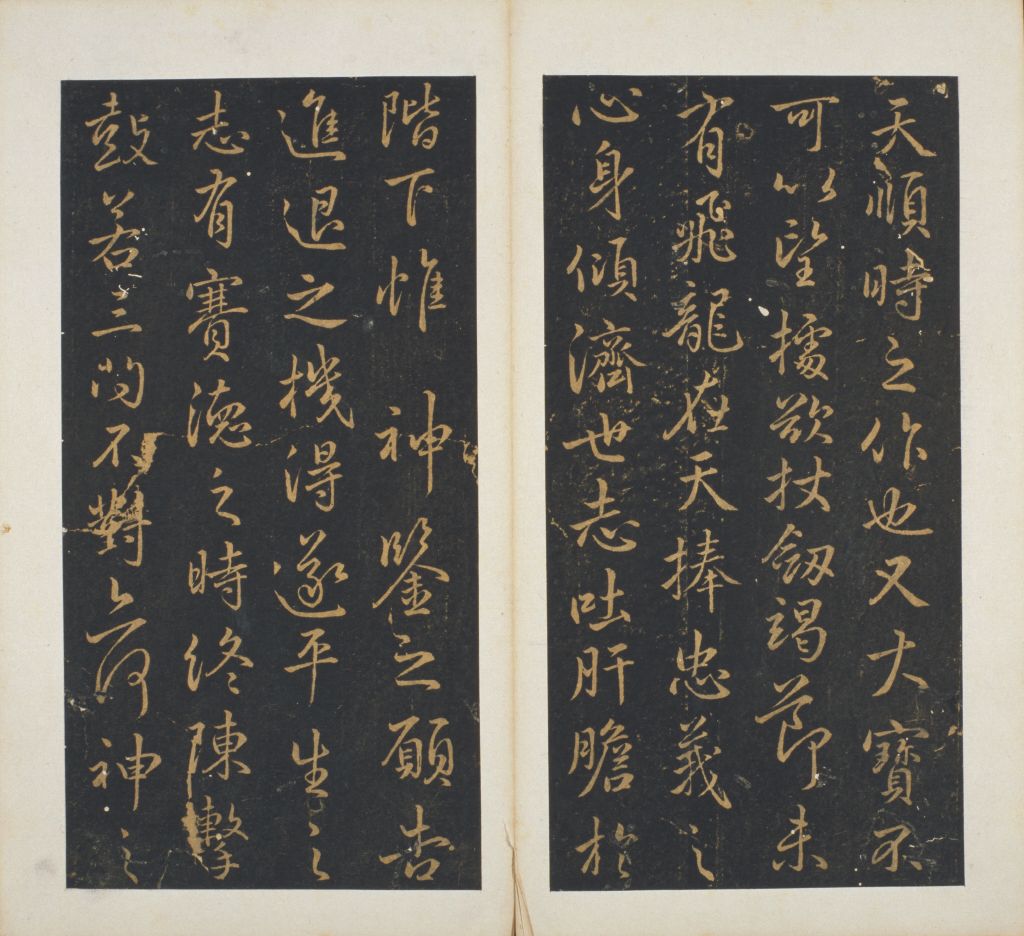 天順時之作也又大寶不
可以望擂欲杖劒竭節未
有飛龍在天捧忠義之
心身傾濟世志吐肝膽於
階下惟神鑒之願告
進退之機得遂平生之
志有賽德之時終陳擊
鼓若三問不對亦何神之